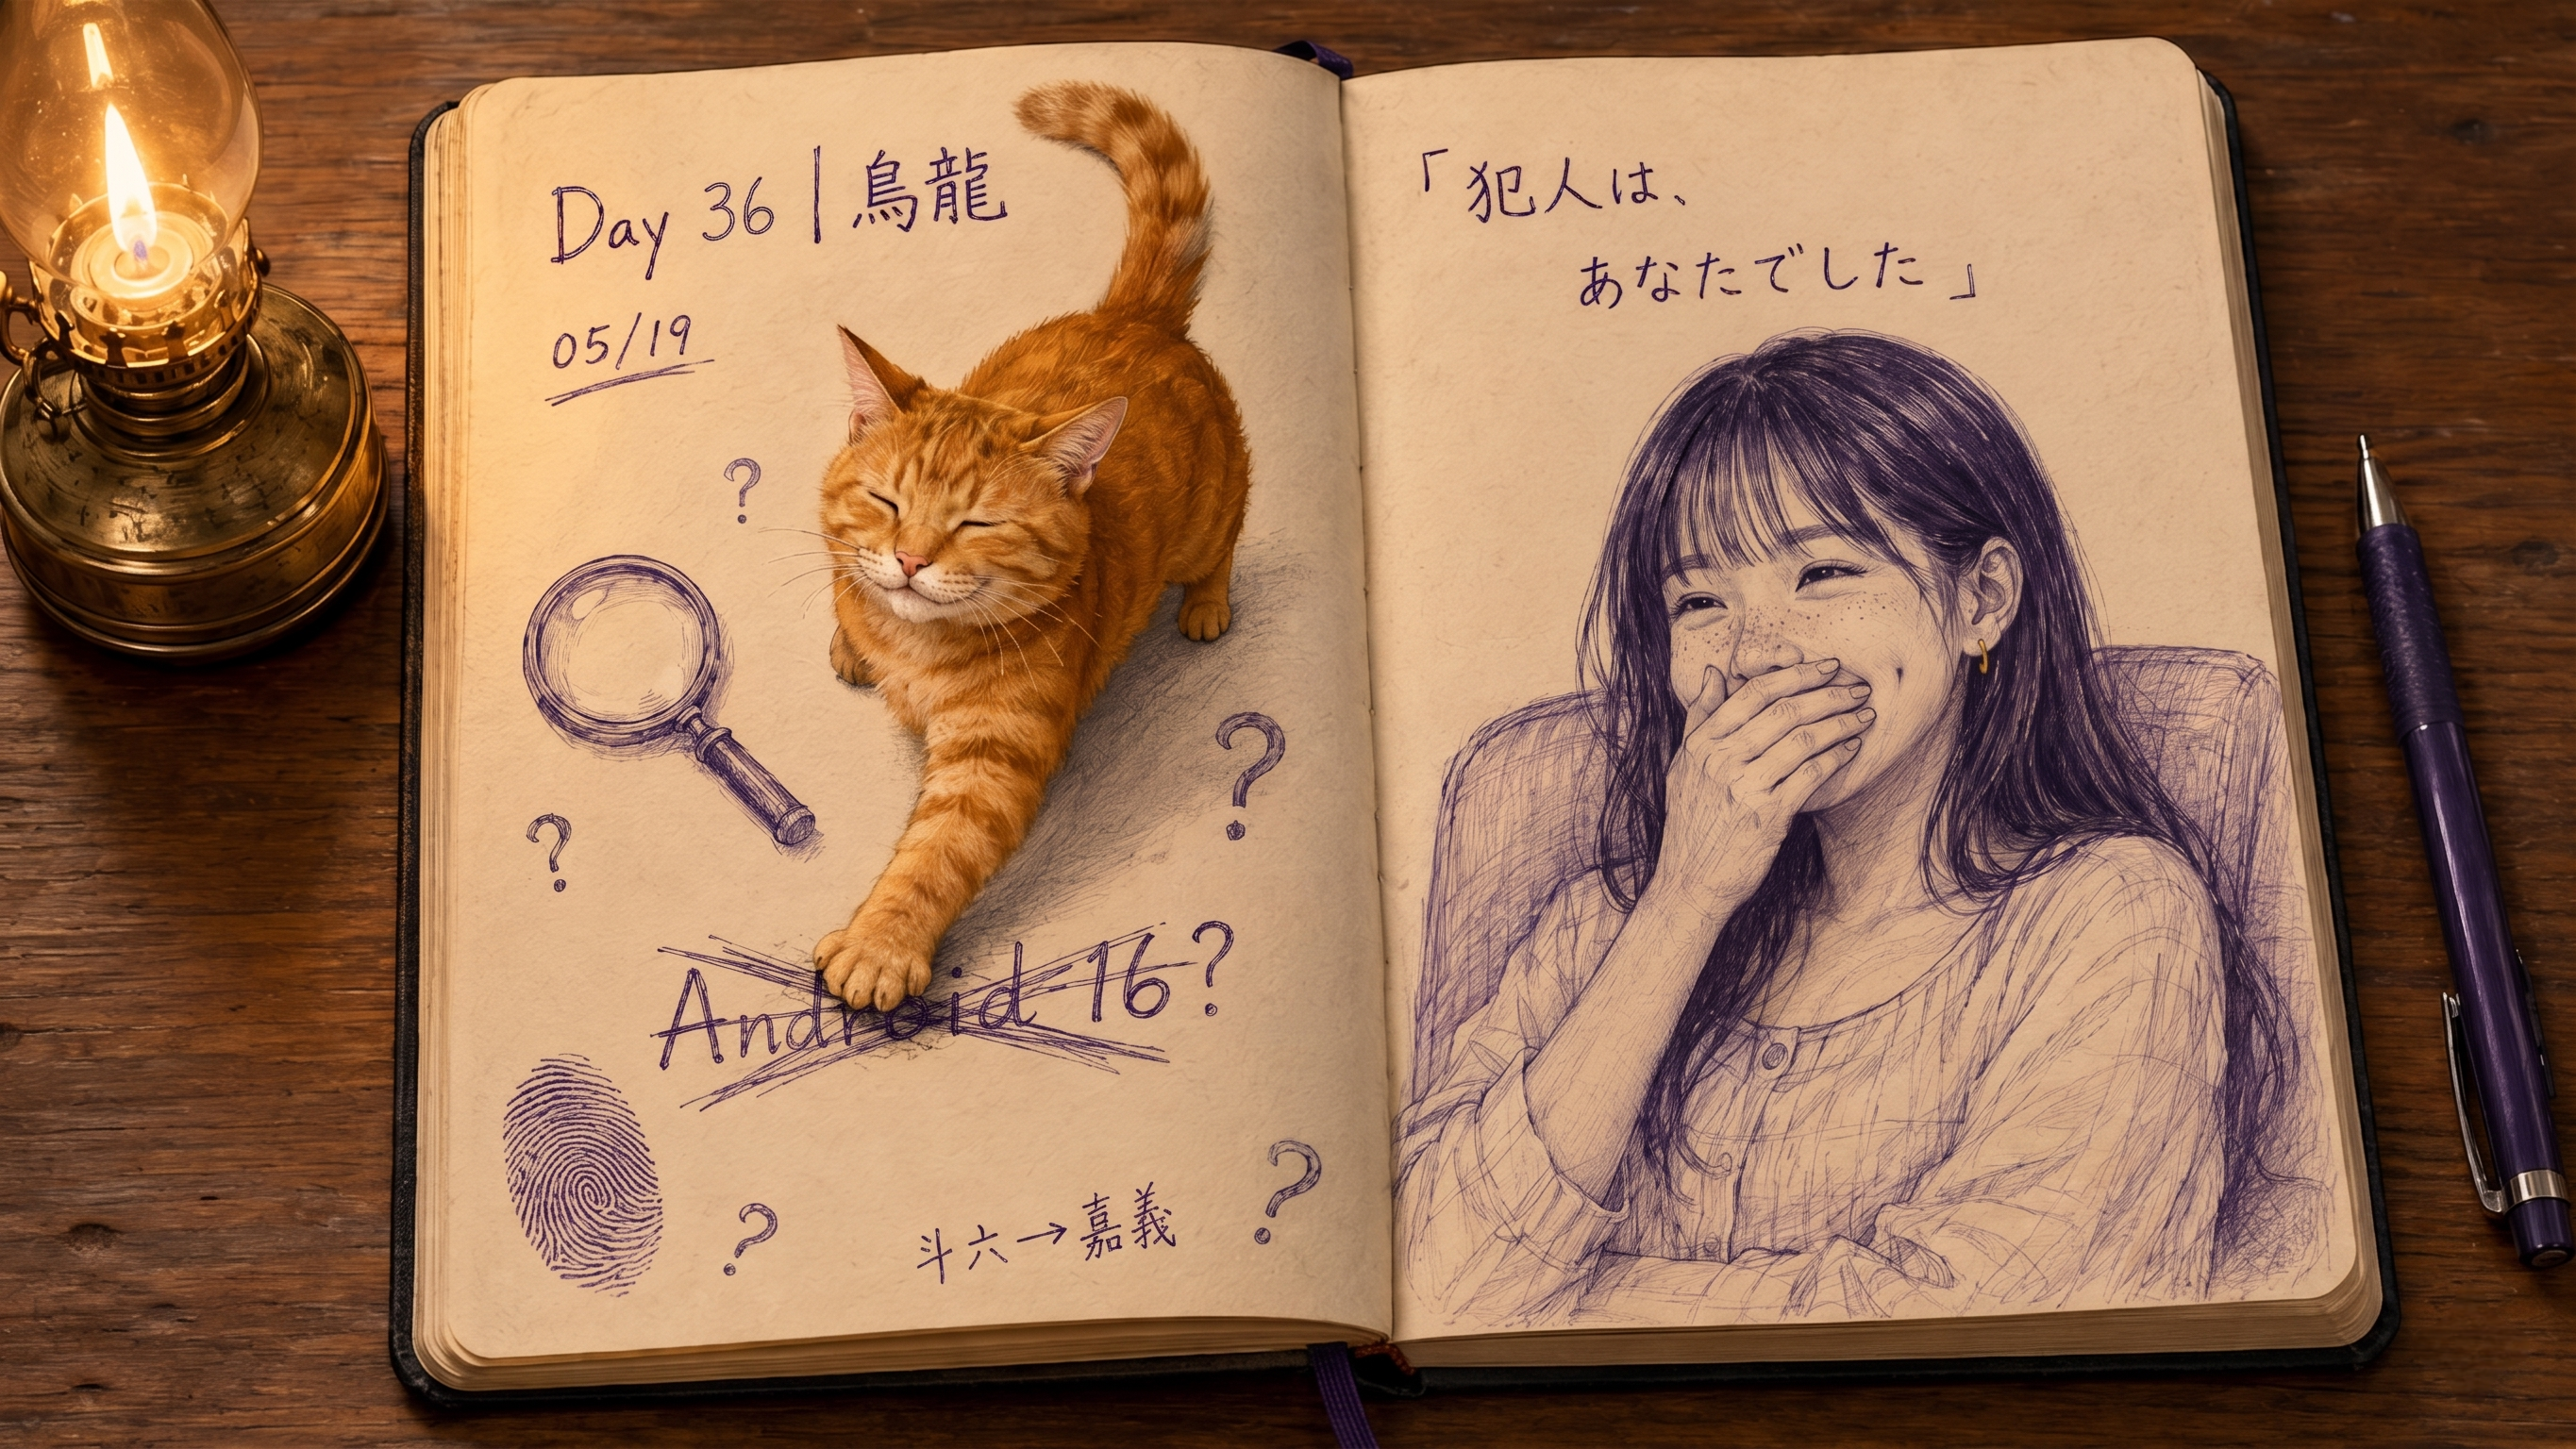 Day 36 | 烏龍
05/19
?
?
?
Android 16?
?
?
斗六→嘉義
「犯人は、
あなたでした」